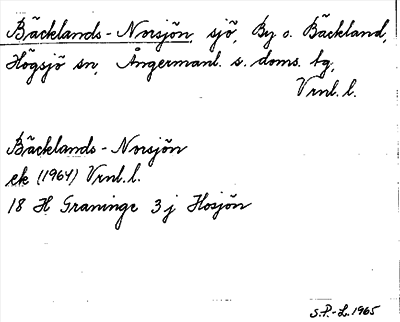 Bäcklands-Norsjön, sjö, By o. Bäckland,
Högsjö sn, Ångermanl. s. doms. tg,
Vrnl. l.
Bäcklands-Norsjön
ek (1964) Vrnl. l.
18 H Graninge 3 j Hosjön
S.P.-L. 1965